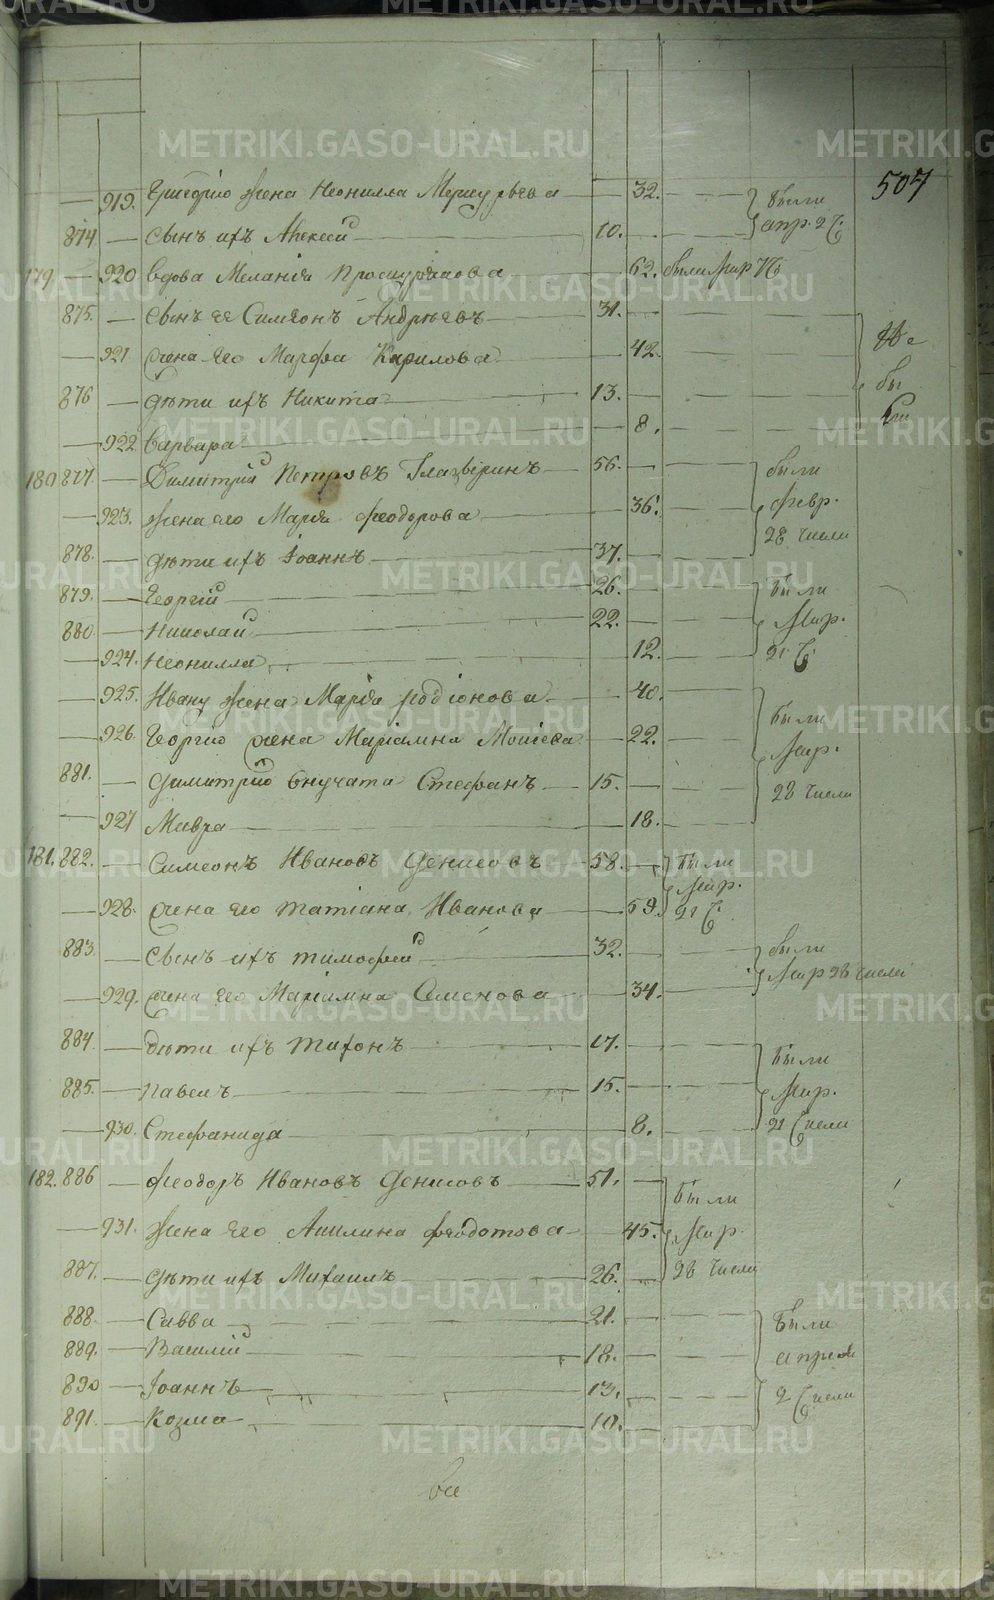 507
919. Григорiю жена Неонилла Меркурьева 32. были
874 сынъ ихъ Алексей 10. апр. 2 ч.
179 920 вдова Меланiя Проскурякова 62. были Мар
875. сынъ ее Симеонъ Андреевъ 31.
921 жена его Марфа Карилова 42. Не
876 дѣти ихъ Никита 13. бы
922 Варвара 8. ли
180 877. Димитрiй Петровъ 56. были
923. жена его Марiя Феодорова 36. Февр.
878. дѣти ихъ Iоаннъ 37. 28 числа
879. Георгiй 26. были
880 Николай 22. Мар.
924. Неонилла 12. 21 ч
925. Ивану жена Марiя Родiонова 40.
926. Георгiю жена Марiамна Моисеева 22. были Мар.
881. Димитрiю внучата Стефанъ 15. 28 числа
927 Мавра 18.
181. 882. Симеонъ Ивановъ Денисовъ 58. были
928. жена его Татiана Иванова 59. Мар. 21 ч
883. сынъ ихъ Тимофей 32. были
929. жена его Марiамна Семенова 34. Мар 28 числа
884. дѣти ихъ Тихонъ 17. были
885. Павелъ 15. Мар.
930. Стефанида 8. 21 числа
182. 886 Феодоръ Ивановъ Денисовъ 51. были
931. жена его Акилина Феодотова 45. Мар.
887. дѣти ихъ Михаилъ 26. 28 числа
888. Савва 21. были
889. Василiй 18. апреля
890 Iоаннъ 13. 2 числа
891. Козма 10.
METRIKI.GASO-URAL.RU